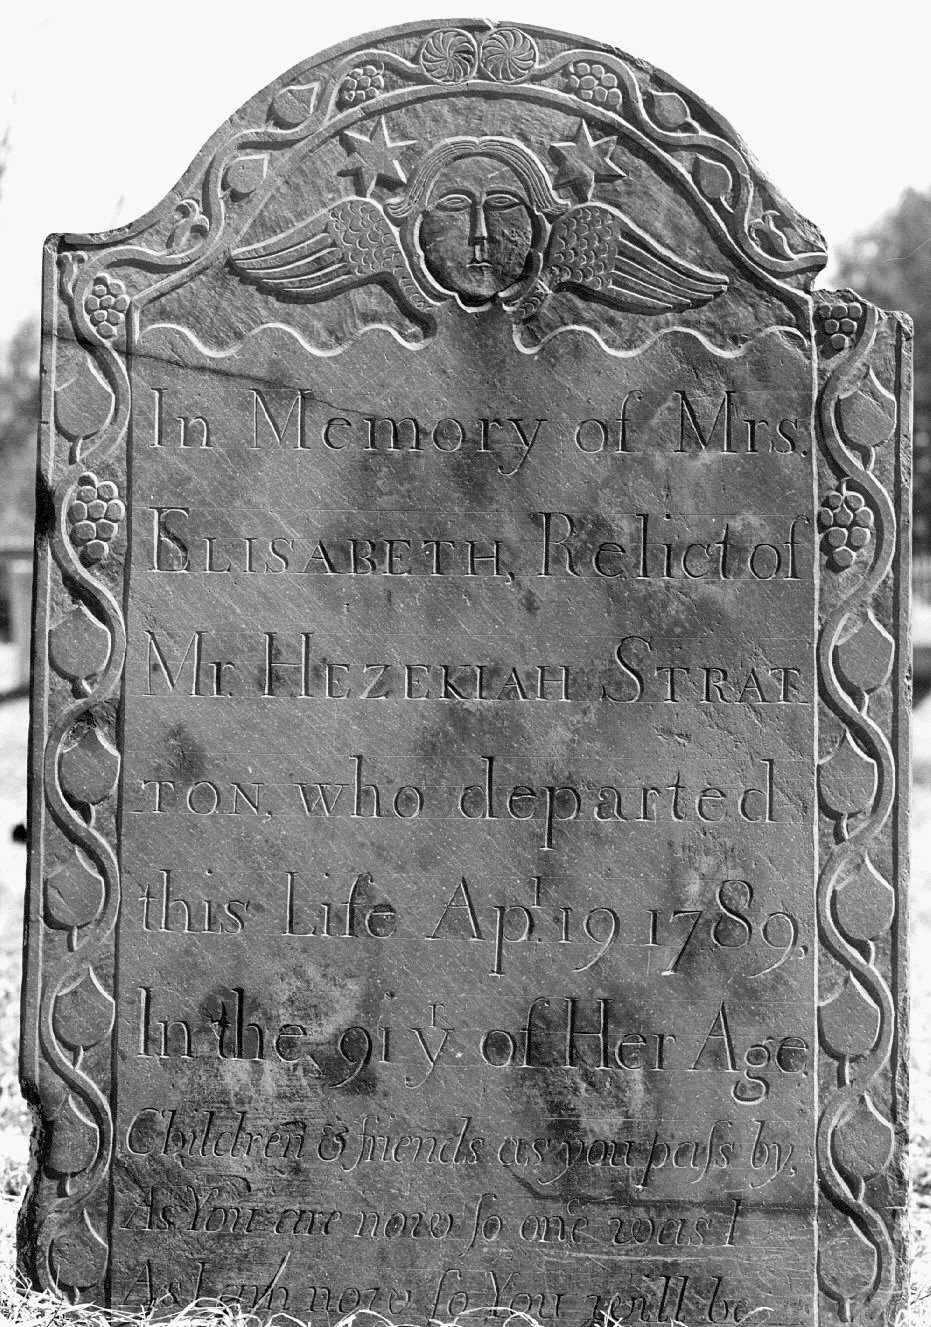 In Memory of Mrs.
ELISABETH, Relict of
Mr. HEZEKIAH STRAT
TON, who departed
this Life Apl. 19 1789.
In the 91 Yr of Her Age
Children & friends as you paſs by,
As You are now ſo one was I
As I am now ſo You must be